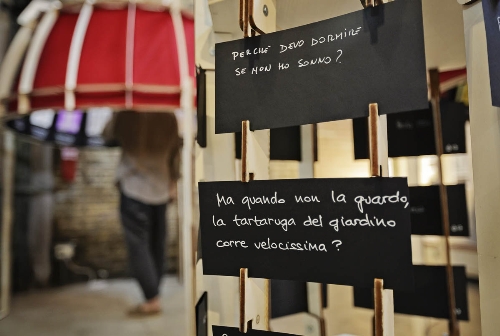 PERCHE DEVO DORMIRE
SE NON HO SONNO?
Ma quando non la guardo,
la tartaruga del giardino
corre velocissima?